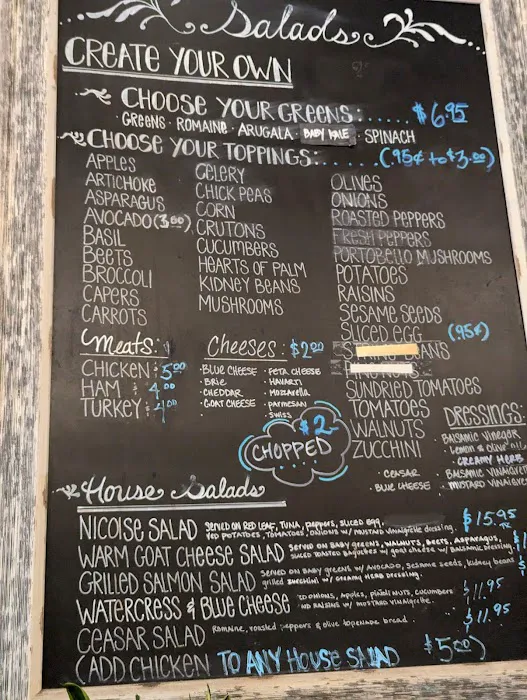 Salads
CREATE YOUR OWN
CHOOSE YOUR GREENS:...... $6.95
GREENS · ROMAINE · ARUGALA · BABY KALE · SPINACH
CHOOSE YOUR TOPPINGS:...... (.95¢ to $3.00)
APPLES
ARTICHOKE
ASPARAGUS
AVOCADO (3.00)
BASIL
BEETS
BROCCOLI
CAPERS
CARROTS
CELERY
CHICK PEAS
CORN
CRUTONS
CUCUMBERS
HEARTS OF PALM
KIDNEY BEANS
MUSHROOMS
OLIVES
ONIONS
ROASTED PEPPERS
FRESH PEPPERS
PORTOBELLO MUSHROOMS
POTATOES
RAISINS
SESAME SEEDS
SLICED EGG (.95¢)
BEANS
SUNDRIED TOMATOES
TOMATOES
WALNUTS
ZUCCHINI
Meats:
CHICKEN: 5.00
HAM : 4.00
TURKEY : 4.00
Cheeses: $2.00
· BLUE CHEESE
· BRIE
· CHEDDAR
· GOAT CHEESE
· FETA CHEESE
· HAVARTI
· MOZZARELLA
· PARMESAN
· SWISS
$2-
CHOPPED
DRESSINGS:
· BALSAMIC VINEGER
· LEMON & OLIVE OIL
· CREAMY HERB
· CEASAR · BALSAMIC VINAIGRE
· BLUE CHEESE · MUSTARD VINAIGRE
House Salads
NICOISE SALAD SERVED ON RED LEAF, TUNA, PEPPERS, SLICED EGG, $15.95
RED POTATOES, TOMATOES, ONIONS W/ MUSTARD VINAIGRETTE DRESSING.
WARM GOAT CHEESE SALAD SERVED ON BABY GREENS, WALNUTS, BEETS, ASPARAGUS,
SLICED TOASTED BAGUETTES W/ GOAT CHEESE W/ BALSAMIC DRESSING
GRILLED SALMON SALAD SERVED ON BABY GREENS W/ AVOCADO, SESAME SEEDS, KIDNEY BEANS
GRILLED ZUCCHINI W/ CREAMY HERB DRESSING.
WATERCRESS & BLUE CHEESE RED ONIONS, APPLES, NUTS, CUCUMBERS $11.95
AND RAISINS W/ MUSTARD VINAIGRETTE.
CEASAR SALAD ROMAINE, ROASTED PEPPERS & OLIVE TOPENADE BREAD. $11.95
(ADD CHICKEN TO ANY HOUSE SALAD $5.00)